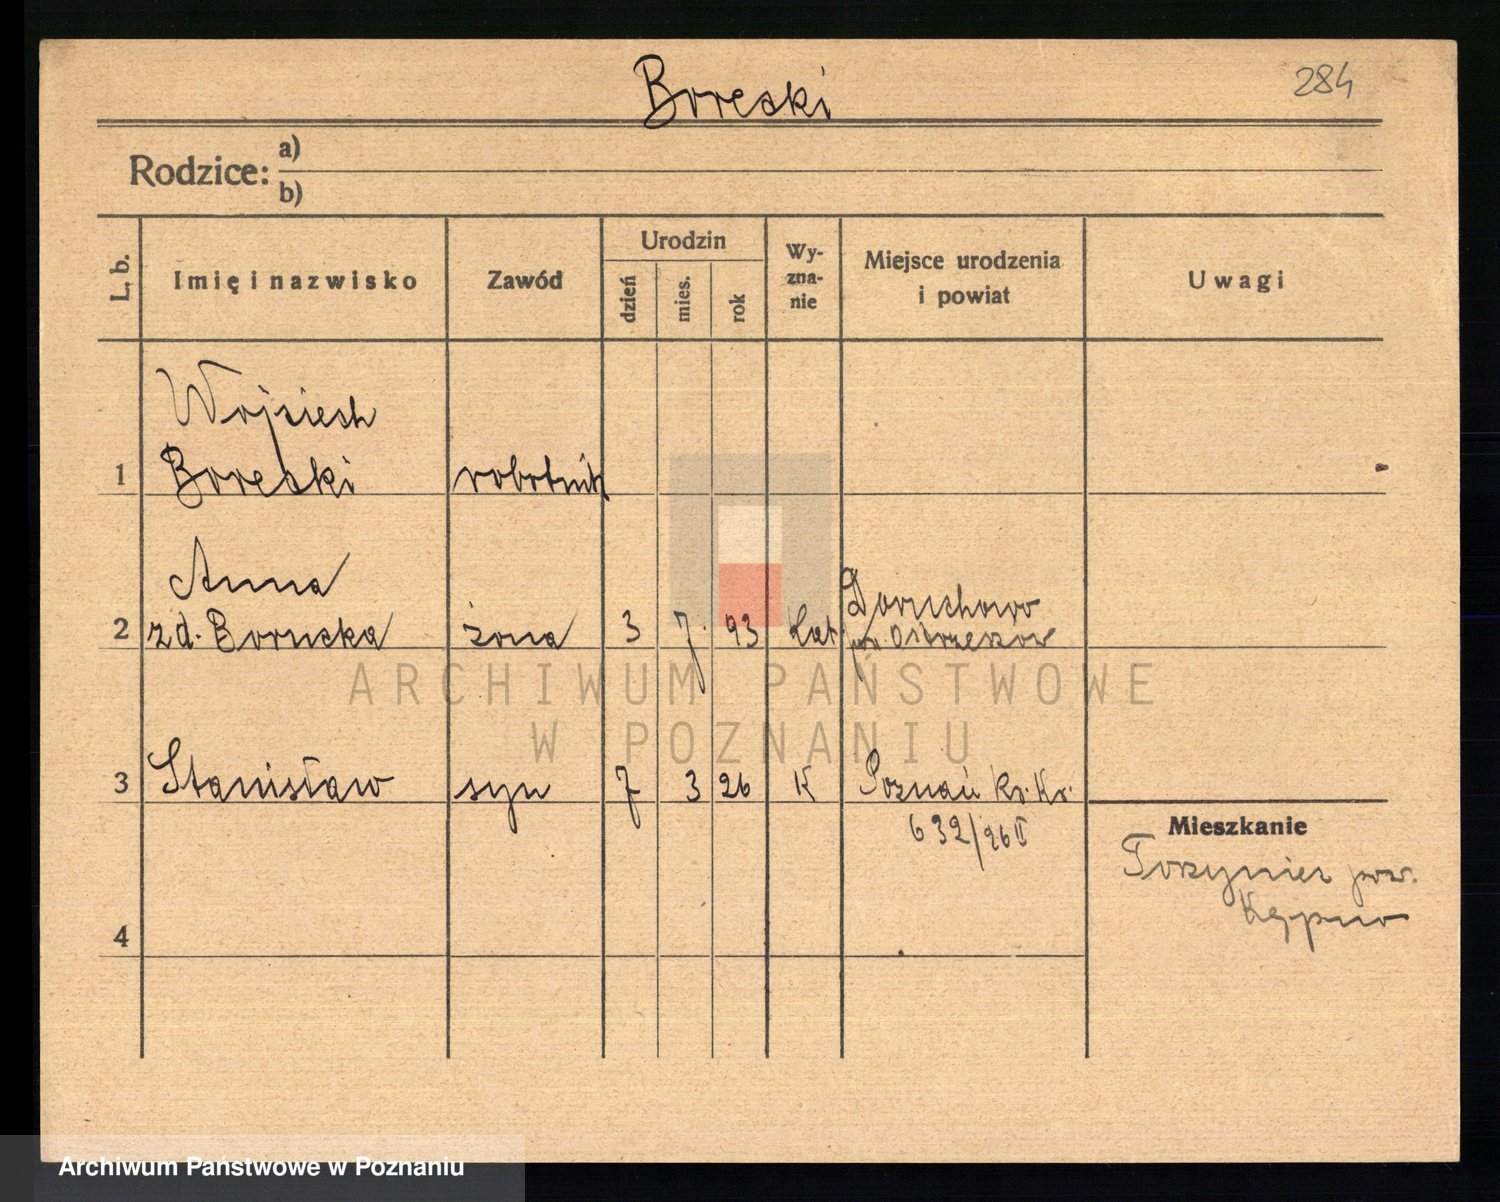 Borecki
284
Rodzice: a)
b)
L. b.
Imię i nazwisko
Zawód
Urodzin
dzień
mies.
rok
Wy-
zna-
nie
Miejsce urodzenia
i powiat
Uwagi
Wojciech
1 Borecki robotnik
Anna Doruchowo
2 zd. Borucka żona 3 7. 93 kat. pow. Ostrzeszów
ARCHIWUM PAŃSTWOWE
W POZNANIU
3 Stanisław syn 7 3 26 K Poznań
632/26 II
Mieszkanie
pow.
Kępno
4
Archiwum Państwowe w Poznaniu